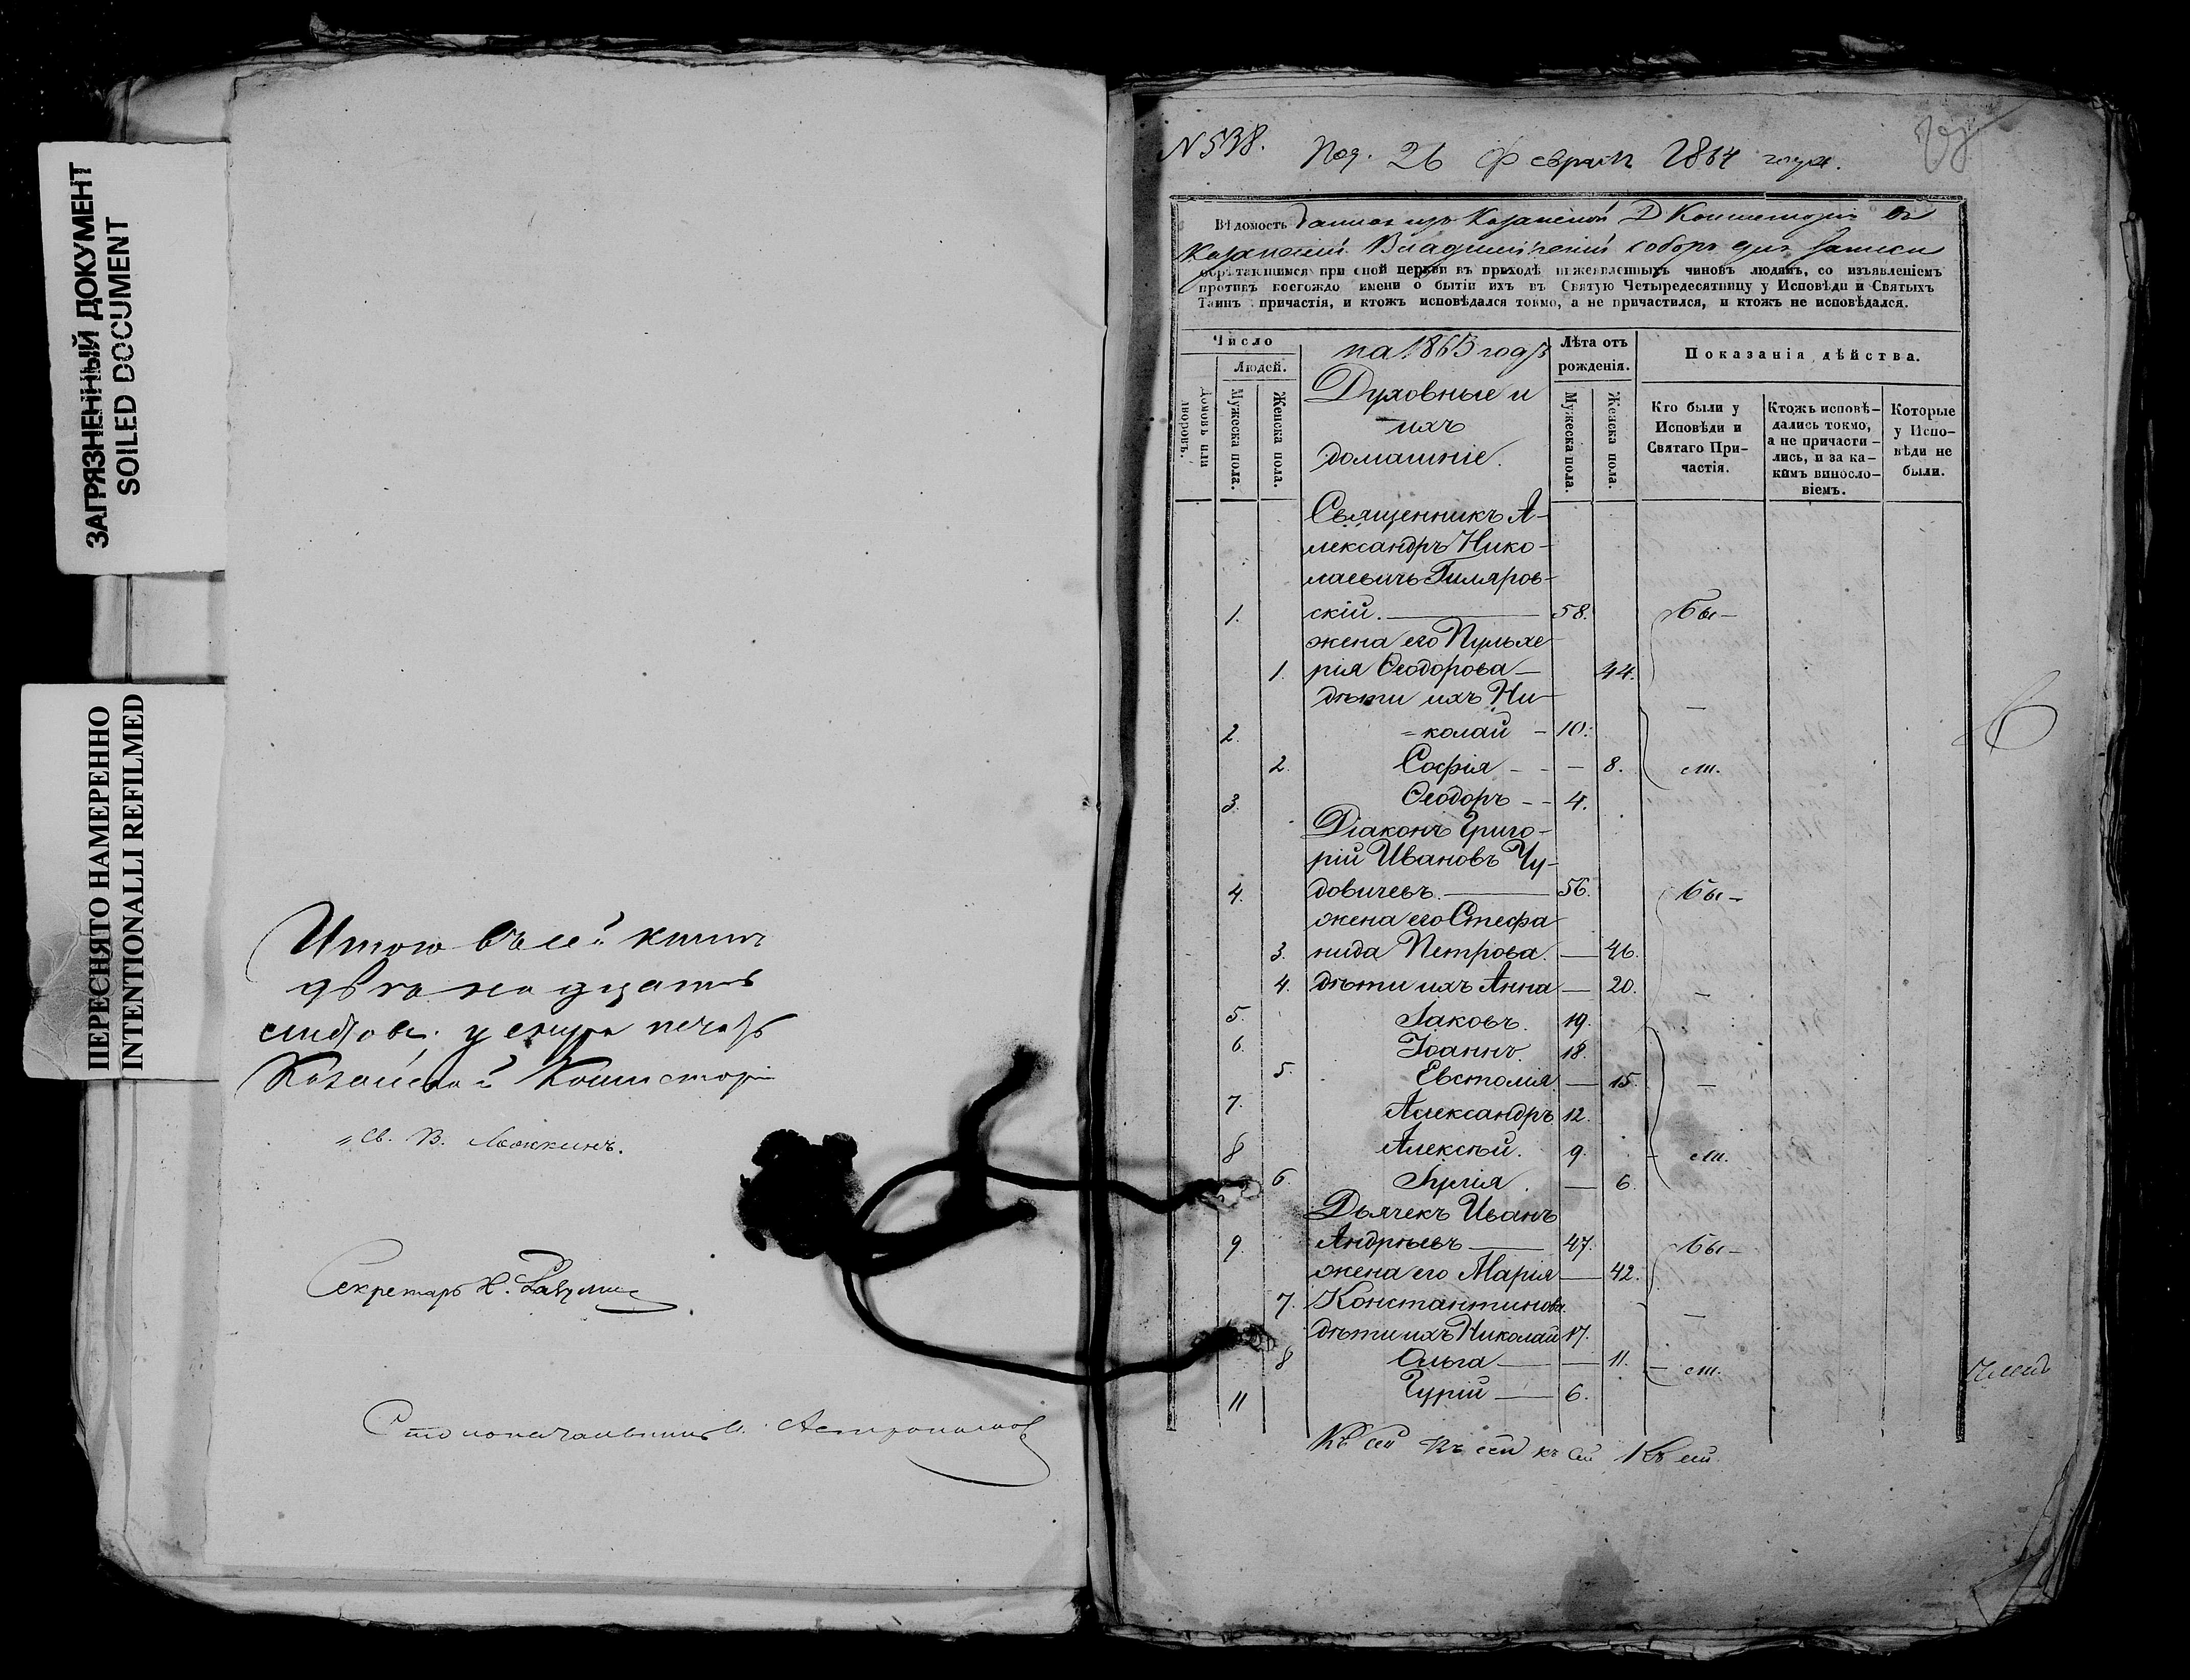 ЗАГРЯЗНЕННЫЙ ДОКУМЕНТ
SOILED DOCUMENT
ПЕРЕСНЯТО НАМЕРЕННО
INTENTIONALLI REFILMED
Итого въ сей книге
двенадцать
листовъ; у снура печать
Казанской Консисторіи
Св. В.
Секретарь Н.
Столоначальникъ
N 538.
Под. 26 Февраля 1864 года.
Вѣдомость данная изъ Казанской Д Консисторіи въ
Казанскій Владимірскій соборъ для записи
обрѣтающимся при оной церкви въ приходѣ нижеявленныхъ чиновъ людямъ, со изъявленіемъ
противъ коегождо имени о бытіи ихъ въ Святую Четыредесятницу у Исповѣди и Святыхъ
Таинъ причастія, и ктожъ исповѣдался токмо, а не причастился, и ктожъ не исповѣдался.
Число
Людей.
Домовъ или дворовъ.
Мужеска пола.
Женска пола.
на 1865 годъ
Духовные и
ихъ
домашніе.
Лѣта отъ рожденія.
Мужеска пола.
Женска пола.
Показанія дѣйства.
Кто были у Исповѣди и Святаго Причастія.
Ктожъ исповѣ-
дались токмо,
а не причасти-
лись, и за ка-
кимъ винословіемъ.
Которые
у Испо-
вѣди не
были.
Священникъ А-
лександръ Нико-
лаевичъ Гиляров-
1. скій. 58. Бы-
жена его Пульхе
1. рія Ѳеодорова 44.
дѣти ихъ Ни-
2. =колай 10.
2. Софія 8. ли.
3. Ѳеодоръ 4.
Діаконъ Григо-
рій Ивановъ Чу-
4. довичевъ. 56. Бы-
жена его Стефа
3. нида Петрова. 46.
4. дѣти ихъ Анна 20.
5. Іаковъ. 19.
6. Іоаннъ. 18.
5. Евстолія. 15.
7. Александръ 12.
8 Алексѣй. 9. ли.
6. Іулія. 6.
Дьячекъ Иванъ
9. Андреевъ 47. Бы-
жена его Марія 42.
7. Константинова.
дѣти ихъ Николай 17.
8 Ольга 11. ли.
11 Гурій 6.
Къ сей къ сей къ сей Къ сей